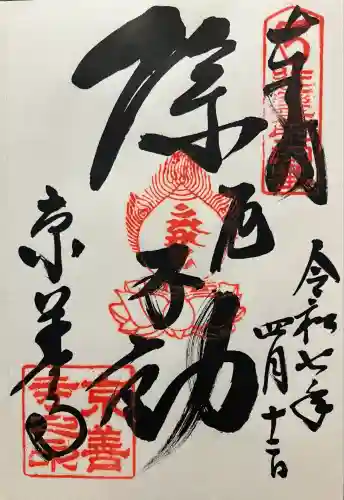 奉拝
令和七年
四月十二日
除厄不動
京善寺
京善
寺之印